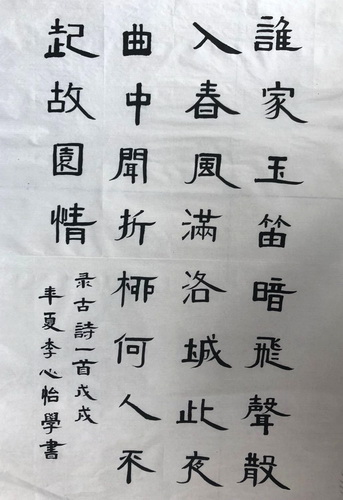 誰家玉笛暗飛聲散
入春風滿洛城此夜
曲中聞折栁何人不
起故園情
录古詩一首戊戌
年夏李心怡學書